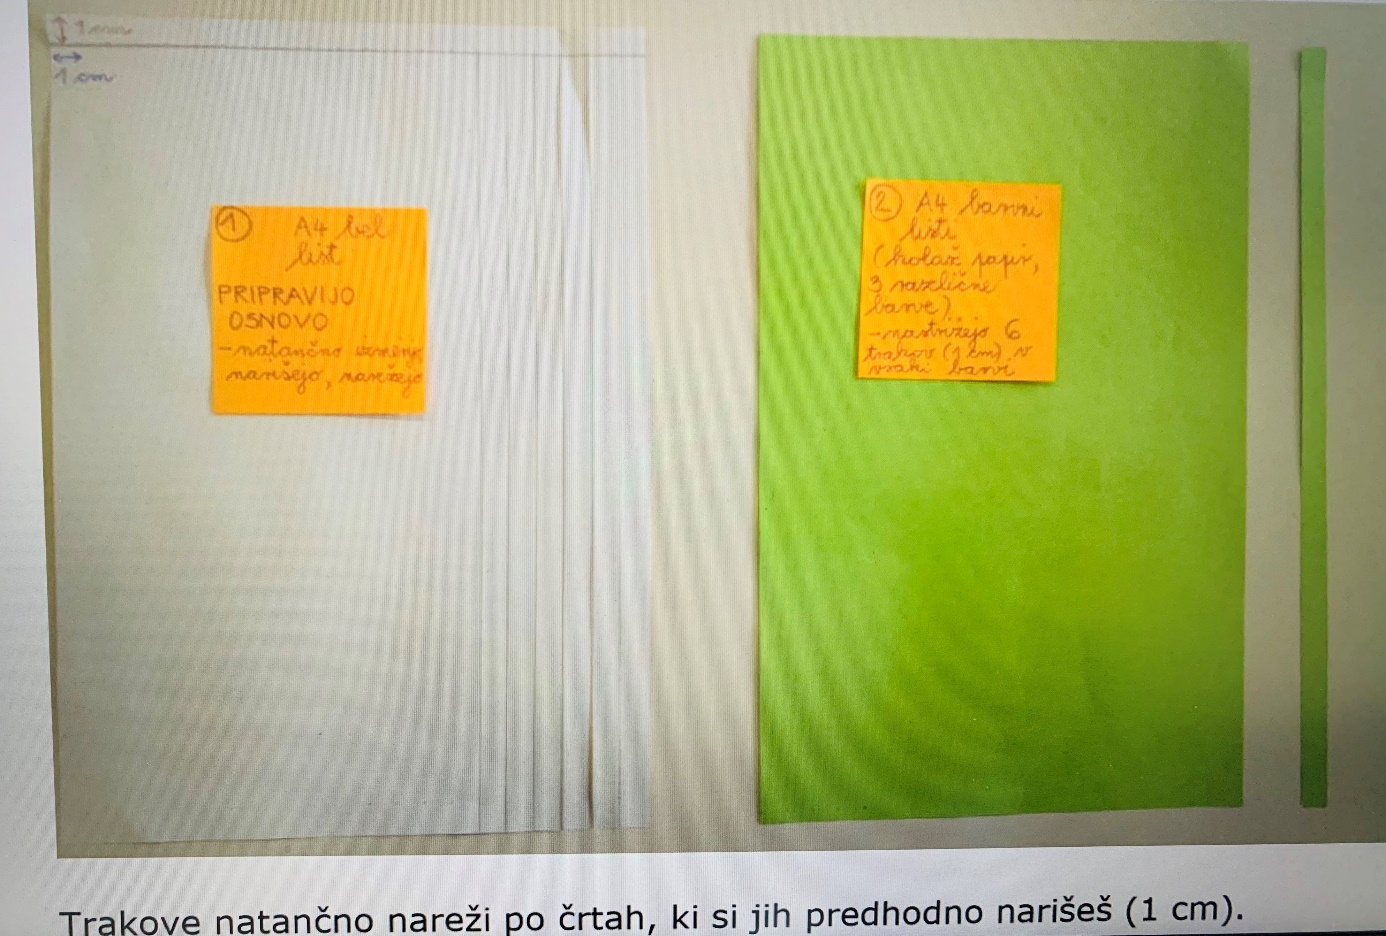 1 cm
① A4 bel
list
PRIPRAVIJO
OSNOVO
-natančno izmerijo
narišejo, narežejo
② A4 barvni
listi
(kolaž papir,
3 različne
barve)
-nastrižejo 6
trakov (1 cm) v
vsaki barvi
Trakove natančno nareži po črtah, ki si jih predhodno narišeš (1 cm).